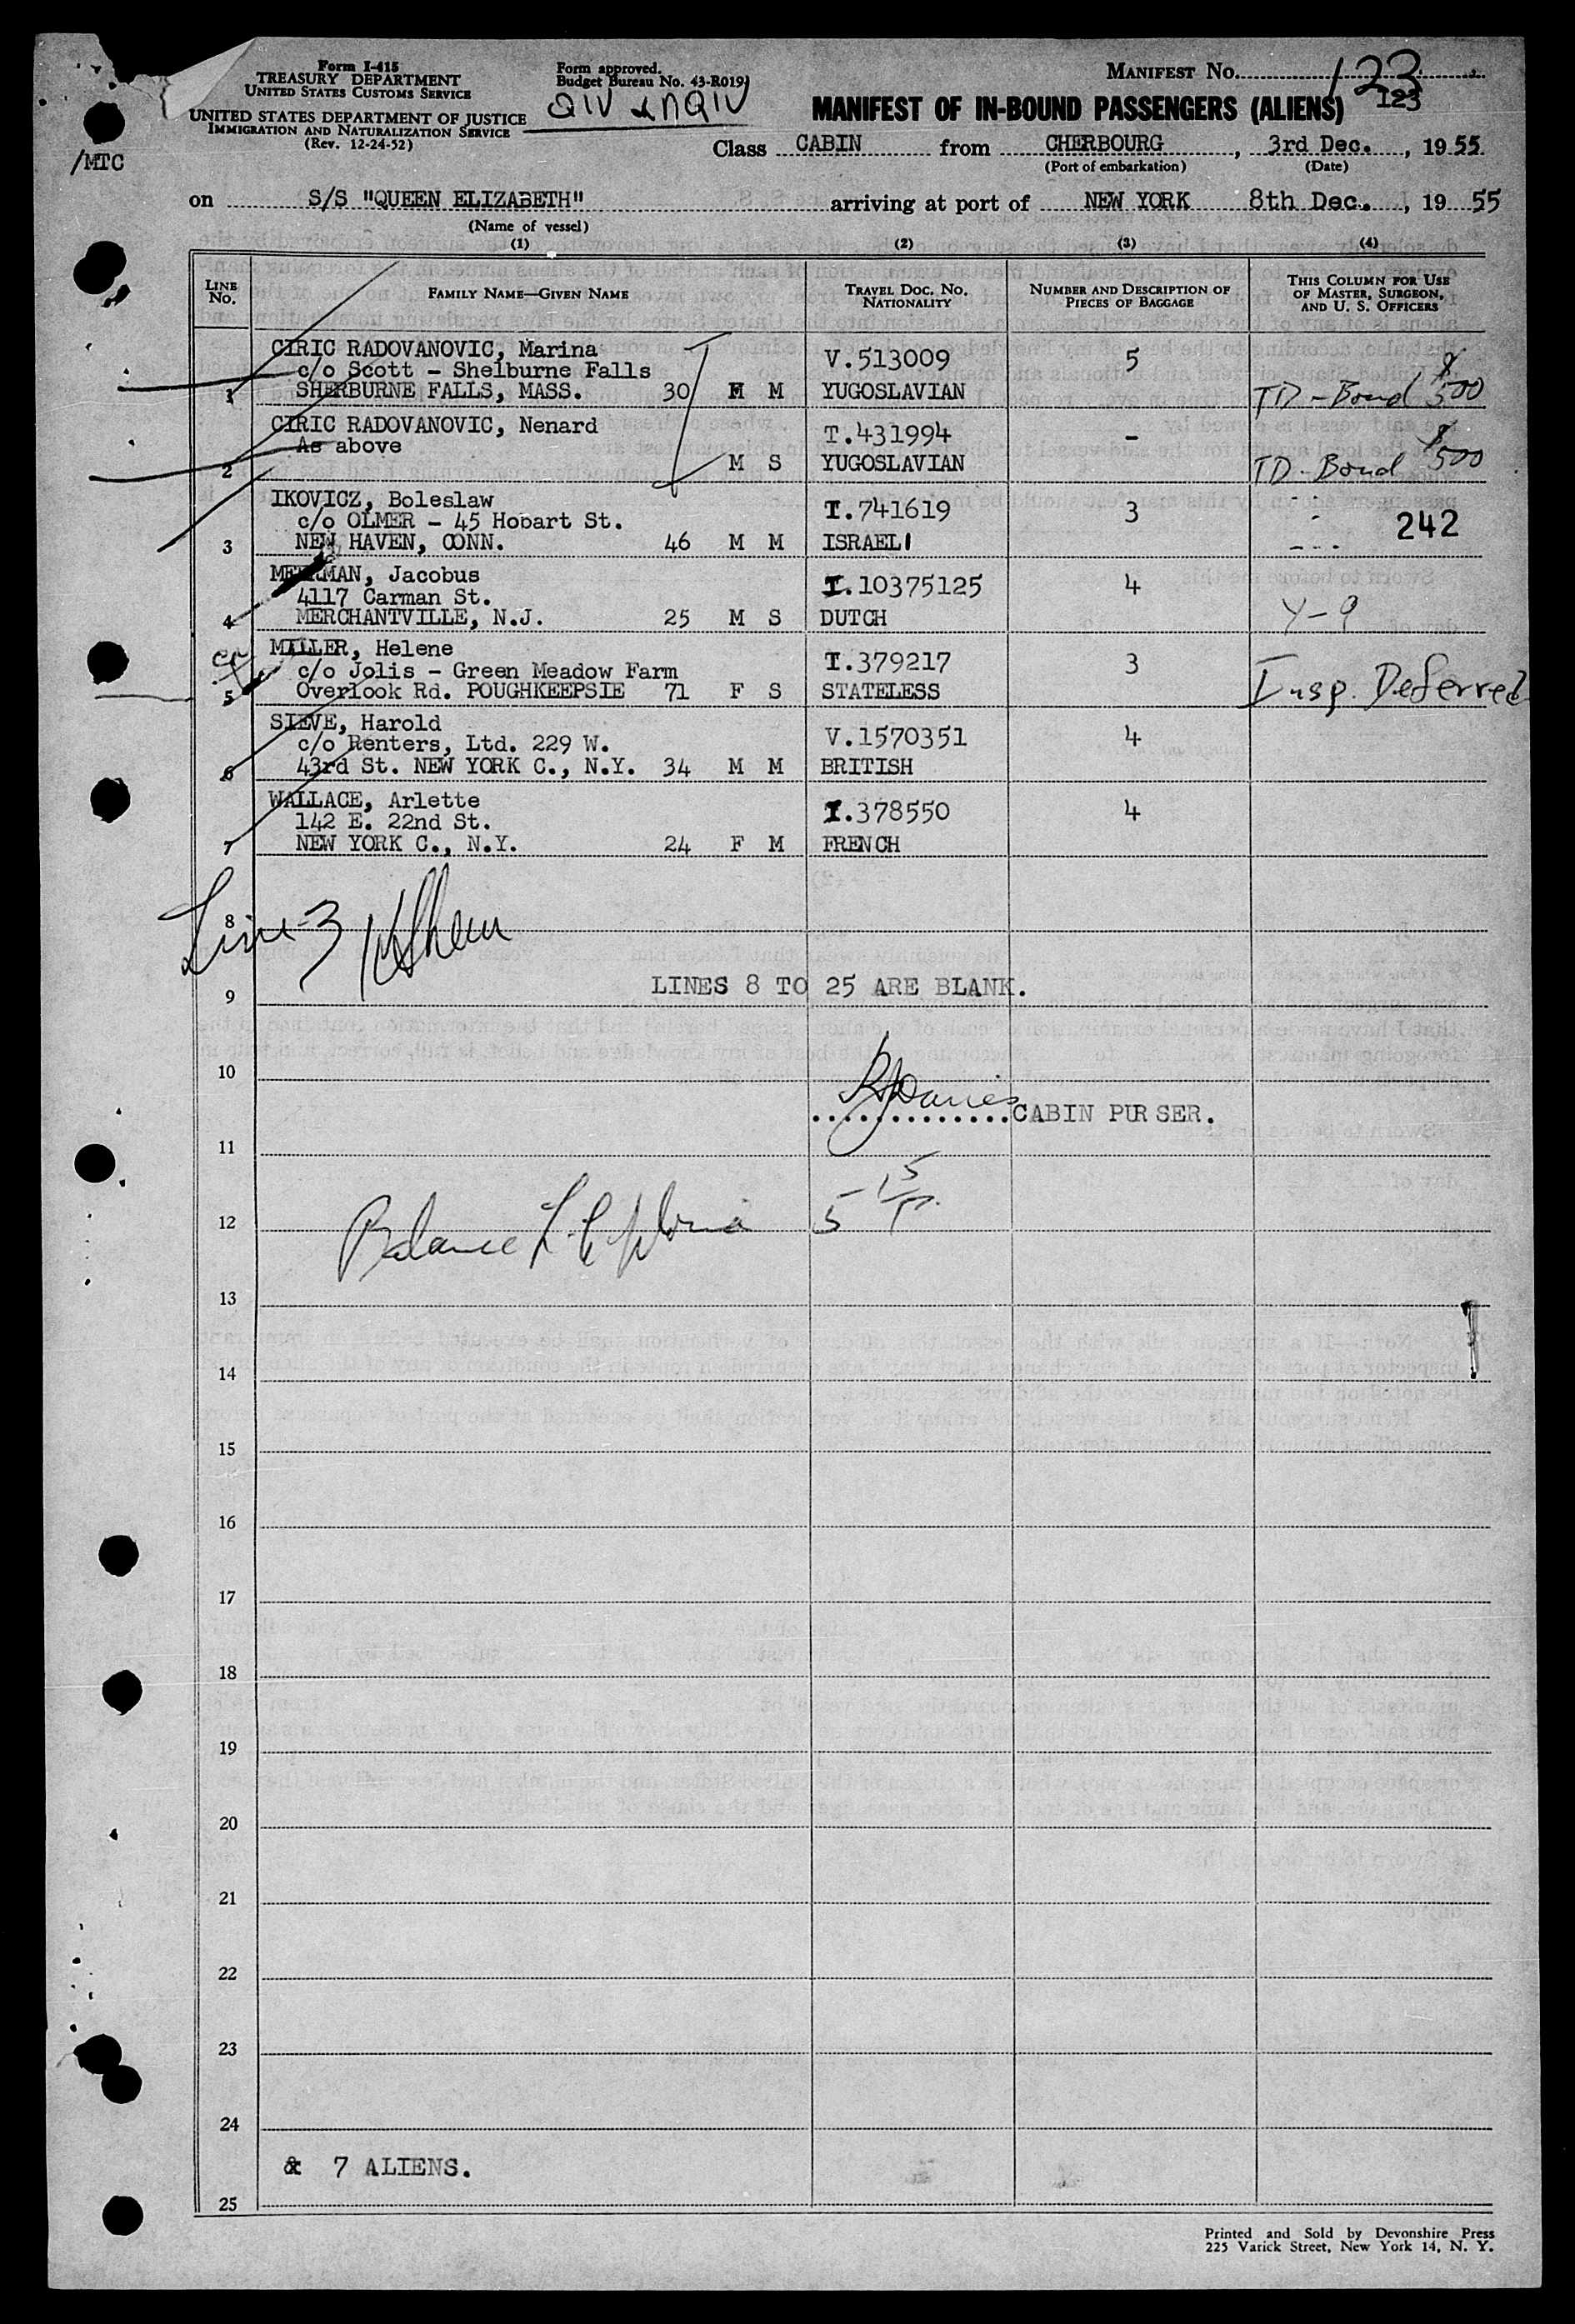 Form I-415
TREASURY DEPARTMENT
UNITED STATES CUSTOMS SERVICE
UNITED STATES DEPARTMENT OF JUSTICE
IMMIGRATION AND NATURALIZATION SERVICE
(Rev. 12-24-52)
/MTC
Form approved.
Budget Bureau No. 43-R019
QIV & NQIV
MANIFEST NO. 123
123
MANIFEST OF IN-BOUND PASSENGERS (ALIENS)
Class CABIN from CHERBOURG, 3rd Dec., 1955.
(Port of embarkation) (Date)
on S/S "QUEEN ELIZABETH" arriving at port of NEW YORK 8th Dec., 1955
(Name of vessel)
(1) (2) (3) (4)
LINE NO. FAMILY NAME—GIVEN NAME TRAVEL DOC. NO. NATIONALITY NUMBER AND DESCRIPTION OF PIECES OF BAGGAGE THIS COLUMN FOR USE OF MASTER, SURGEON, AND U. S. OFFICERS
CIRIC RADOVANOVIC, Marina V.513009 5
c/o Scott - Shelburne Falls
1 SHERBURNE FALLS, MASS. 30 M YUGOSLAVIAN TD - Bond $500
CIRIC RADOVANOVIC, Nenard T.431994 -
As above
2 M S YUGOSLAVIAN TD - Bond $500
IKOVICZ, Boleslaw T.741619 3
c/o OLMER - 45 Hobart St. 242
3 NEW HAVEN, CONN. 46 M M ISRAELI
MEERMAN, Jacobus I.10375125 4
4117 Carman St.
4 MERCHANTVILLE, N.J. 25 M S DUTCH Y-9
MILLER, Helene I.379217 3
c/o Jolis - Green Meadow Farm
5 Overlook Rd. POUGHKEEPSIE 71 F S STATELESS Insp. Deferred
SIEVE, Harold V.1570351 4
c/o Renters, Ltd. 229 W.
6 43rd St. NEW YORK C., N.Y. 34 M M BRITISH
WALLACE, Arlette I.378550 4
142 E. 22nd St.
7 NEW YORK C., N.Y. 24 F M FRENCH
8 Line 3
LINES 8 TO 25 ARE BLANK.
9
10
CABIN PURSER.
11
12 Balance
13
14
15
16
17
18
19
20
21
22
23
24
& 7 ALIENS.
25
Printed and Sold by Devonshire Press
225 Varick Street, New York 14, N. Y.